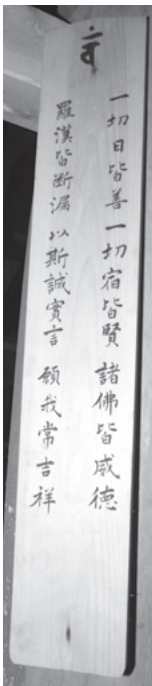 一切日皆善一切宿皆賢 諸佛皆威德
羅漢皆断漏 以斯誠實言 願我常吉祥